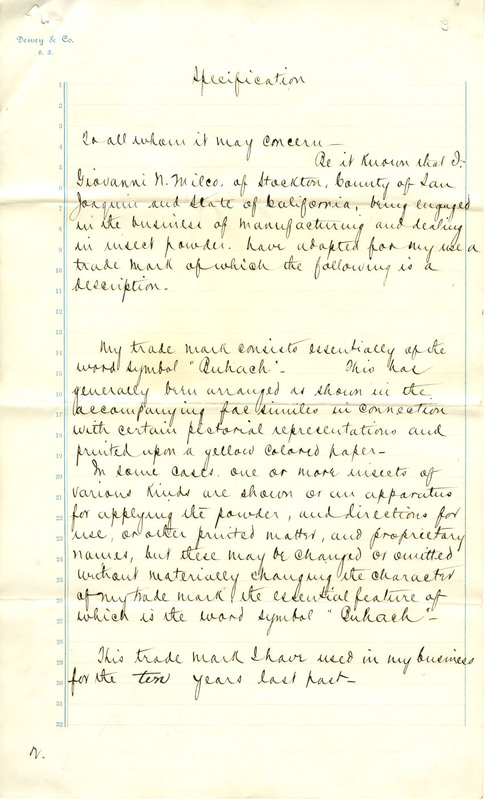 Dewey & Co.
S. F.
Specification
To all whom it may concern—
Be it Known that I,
Giovanni N. Milco, of Stockton, County of San
Joaquin and State of California, being engaged
in the business of manufacturing and dealing
in insect powder, have adopted for my use a
trade mark of which the following is a
description—
My trade mark consists essentially of the
word symbol "Buhach"— This has
generally been arranged as shown in the
accompanying fac similes in connection
with certain pictorial representations and
printed upon a yellow colored paper—
In some cases, one or more insects of
various kinds are shown or an apparatus
for applying the powder, and directions for
use, or other printed matter, and proprietary
names, but these may be changed or omitted
without materially changing the character
of my trade mark the essential feature of
which is the word symbol "Buhach"—
This trade mark I have used in my business
for the ten years last past—
2.
1
2
3
4
5
6
7
8
9
10
11
12
13
14
15
16
17
18
19
20
21
22
23
24
25
26
27
28
29
30
31
32